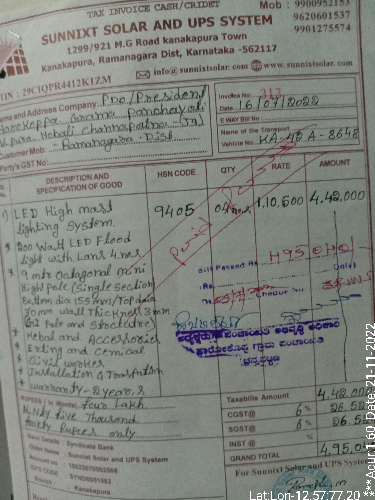 TAX INVOICE CASH/CRIDET
Mob : 9900952153
9620601537
9901275574
SUNNIXT SOLAR AND UPS SYSTEM
1299/921 M.G Road kanakapura Town
Kanakapura, Ramanagara Dist, Karnataka -562117
info@sunnixtsolar.com www.sunnixtsolar.com
29CIQPR4412K1ZM
Name and Address Company: PDO/President
Grama Panchayati
Hobali Channapatna (TQ)
Customer Mob: Ramanagara Dist
Party's GST No:
Invoice No: 313
Date 16/07/2022
E WAY Bill No
Name of the Transport
Vehicle No. KA-42 A-8648
DESCRIPTION AND SPECIFICATION OF GOOD
HSN CODE
QTY
RATE
AMOUNT
1) LED High mast 9405 04 1,10,500 4,42,000
lighting System
* 200 Watt LED Flood
light with Lans 4 nos
* 9 mtr Octagonal mini
High pole (Single Section)
Bottom dia 155 mm/Top dia
70mm wall Thickness 3 mm
GI Pole and Structure)
* Kebal and Accessories
* Erting and Cemical
* Civil worker
* Installation & Transfation
* warranty - 2 years
Bill Passed Rs
Rs
Cheque No
ಗ್ರಾಮ ಪಂಚಾಯಿತಿ
Rupees (in Words) four Lakh
Ninty five Thousand
forty Rupees only
Taxabille Amount 4,42,000
CGST@ 6% 26,52
SGST@ 6% 26,52
INST @ %
GRAND TOTAL 4,95,0
Bank Details : Syndicate Bank
Name : Sunnixt Solar and UPS System
GFS CODE : SYND0001562
Branch : Kanakapura
For Sunnixt Solar and UPS System
Lat:Lon-12.57:77.20 ***Acur:1.60 Date: 21-11-2022